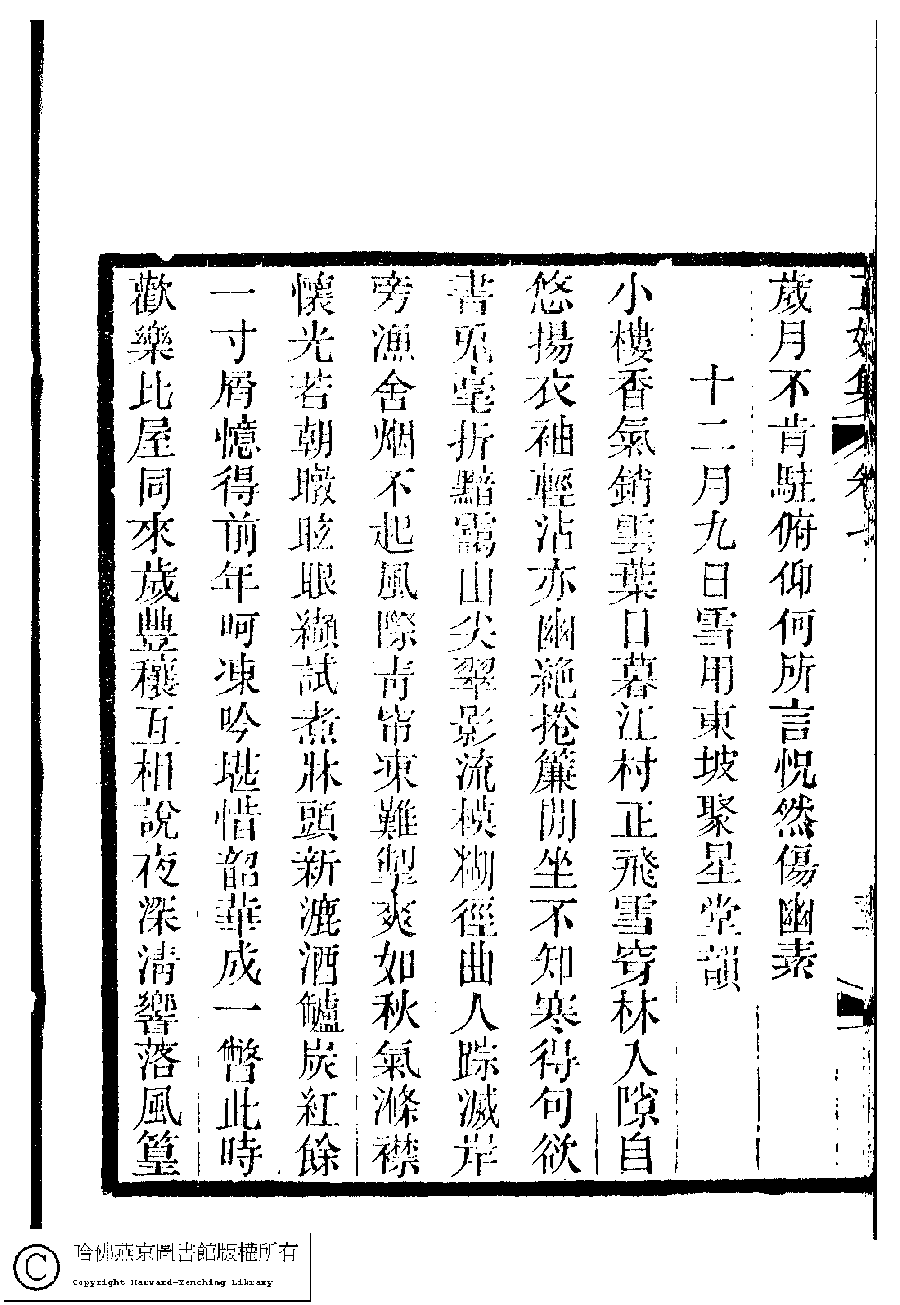 歲月不肯駐俯仰何所言怳然傷幽素
十二月九日雪用東坡聚星堂韻
小樓香氣銷雲葉日暮江村正飛雪穿林入隙自
悠揚衣袖輕沾亦幽絶捲簾閒坐不知寒得句欲
書兎毫折黯靄山尖翠影流模糊徑曲人踪滅岸
旁漁舍烟不起風際靑帘凍難掣爽如秋氣滌襟
懷光若朝暾眩眼纈試煮牀頭新漉酒罏炭紅餘
一寸屑憶得前年呵凍吟堪惜韶華成一瞥此時
歡樂比屋同來歲豐穰互相說夜深清響落風篁
哈佛燕京圖書館版權所有
Copyright Harvard-Yenching Library